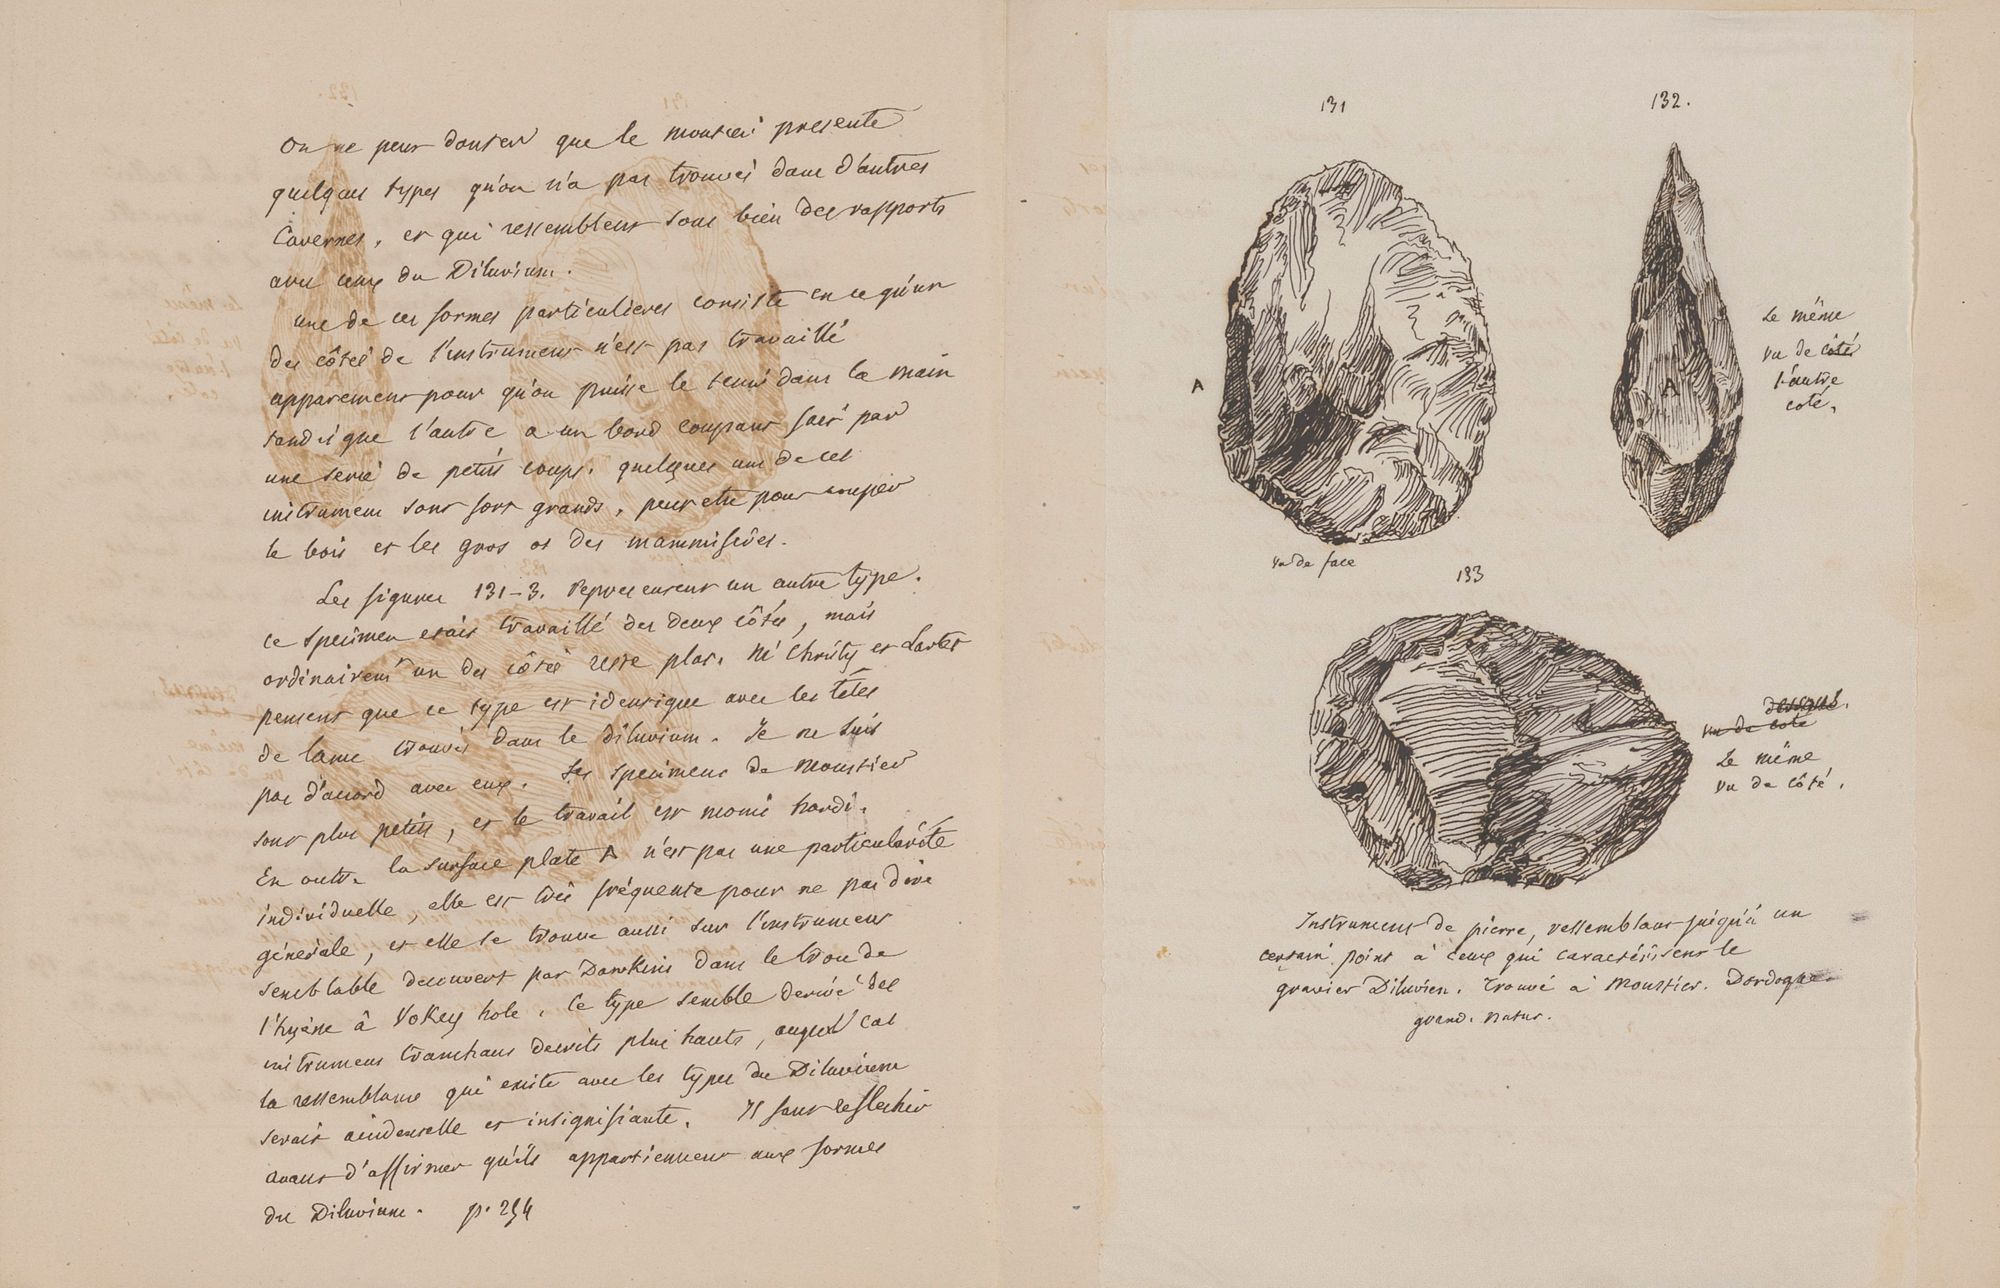 On ne peut douter que le moustier presente
quelques types qu'on n'a pas trouvés dans d'autres
Cavernes, et qui ressemblent sous bien des rapports
avec ceux du Diluvium.
une de ces formes particulieres consiste en ce qu'un
des côtés de l'instrument n'est pas travaillé
apparement pour qu'on puisse le tenir dans la main
tandis que l'autre a un bord coupant fait par
une serie de petits coups. quelques uns de ces
instrument sont fort grands, peut etre pour couper
le bois et les gros os des mammifères.
Les figures 131-3. Representent un autre type.
ce specimen etait travaillé des deux côtés, mais
ordinairemt un des côtés reste plat. Mr Christy et Lartet
pensent que ce type est identique avec les têtes
de lance trouvés dans le diluvium. Je ne suis
pas d'accord avec eux. Les specimens de Moustier
sont plus petits, et le travail est moins hardi.
En outre la surface plate A n'est pas une particularité
individuelle, elle est très fréquente pour ne pas dire
générale, et elle se trouve aussi sur l'instrument
semblable decouvert par Dawkins dans le trou de
l'hyène à Vokey hole. Ce type semble derivé des
instrument tranchans decrits plus hauts, auquel cas
la ressemblance qui existe avec les types du Diluvium
serait accidentelle et insignifiante. Il faut reflechir
avant d'affirmer qu'ils appartiennent aux formes
du Diluvium. p. 254
131
132.
A
A
Le même
vu de côté
l'autre
coté.
vu de face
133
vu de coté
Le même
vu de côté.
Instrument de pierre, ressemblant jusqu'à un
certain point à ceux qui caractérisent le
gravier Diluvien. Trouvé à Moustier. Dordogne
grand. natur.